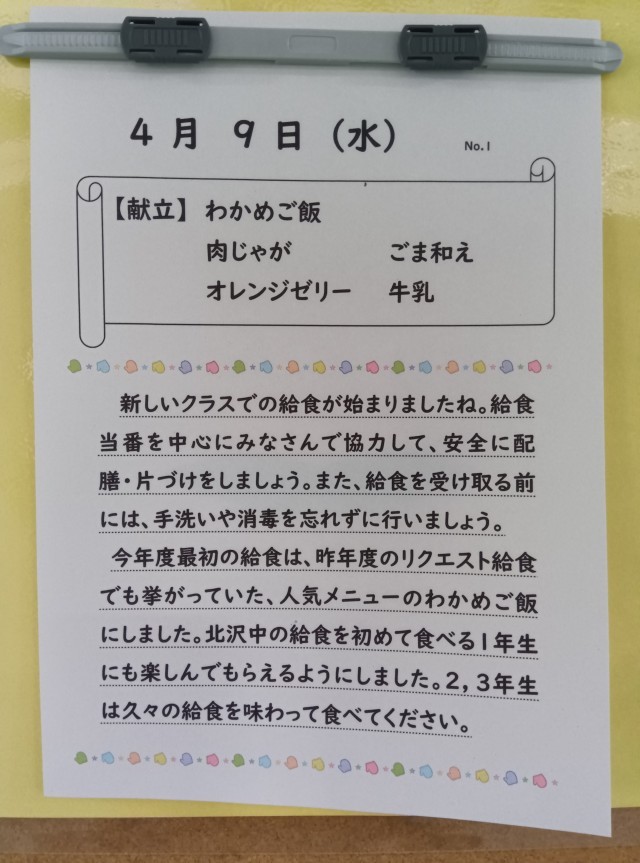 4月 9日（水） No.1
【献立】 わかめご飯
肉じゃが ごま和え
オレンジゼリー 牛乳
新しいクラスでの給食が始まりましたね。給食
当番を中心にみなさんで協力して、安全に配
膳・片づけをしましょう。また、給食を受け取る前
には、手洗いや消毒を忘れずに行いましょう。
今年度最初の給食は、昨年度のリクエスト給食
でも挙がっていた、人気メニューのわかめご飯
にしました。北沢中の給食を初めて食べる1年生
にも楽しんでもらえるようにしました。2，3年生
は久々の給食を味わって食べてください。